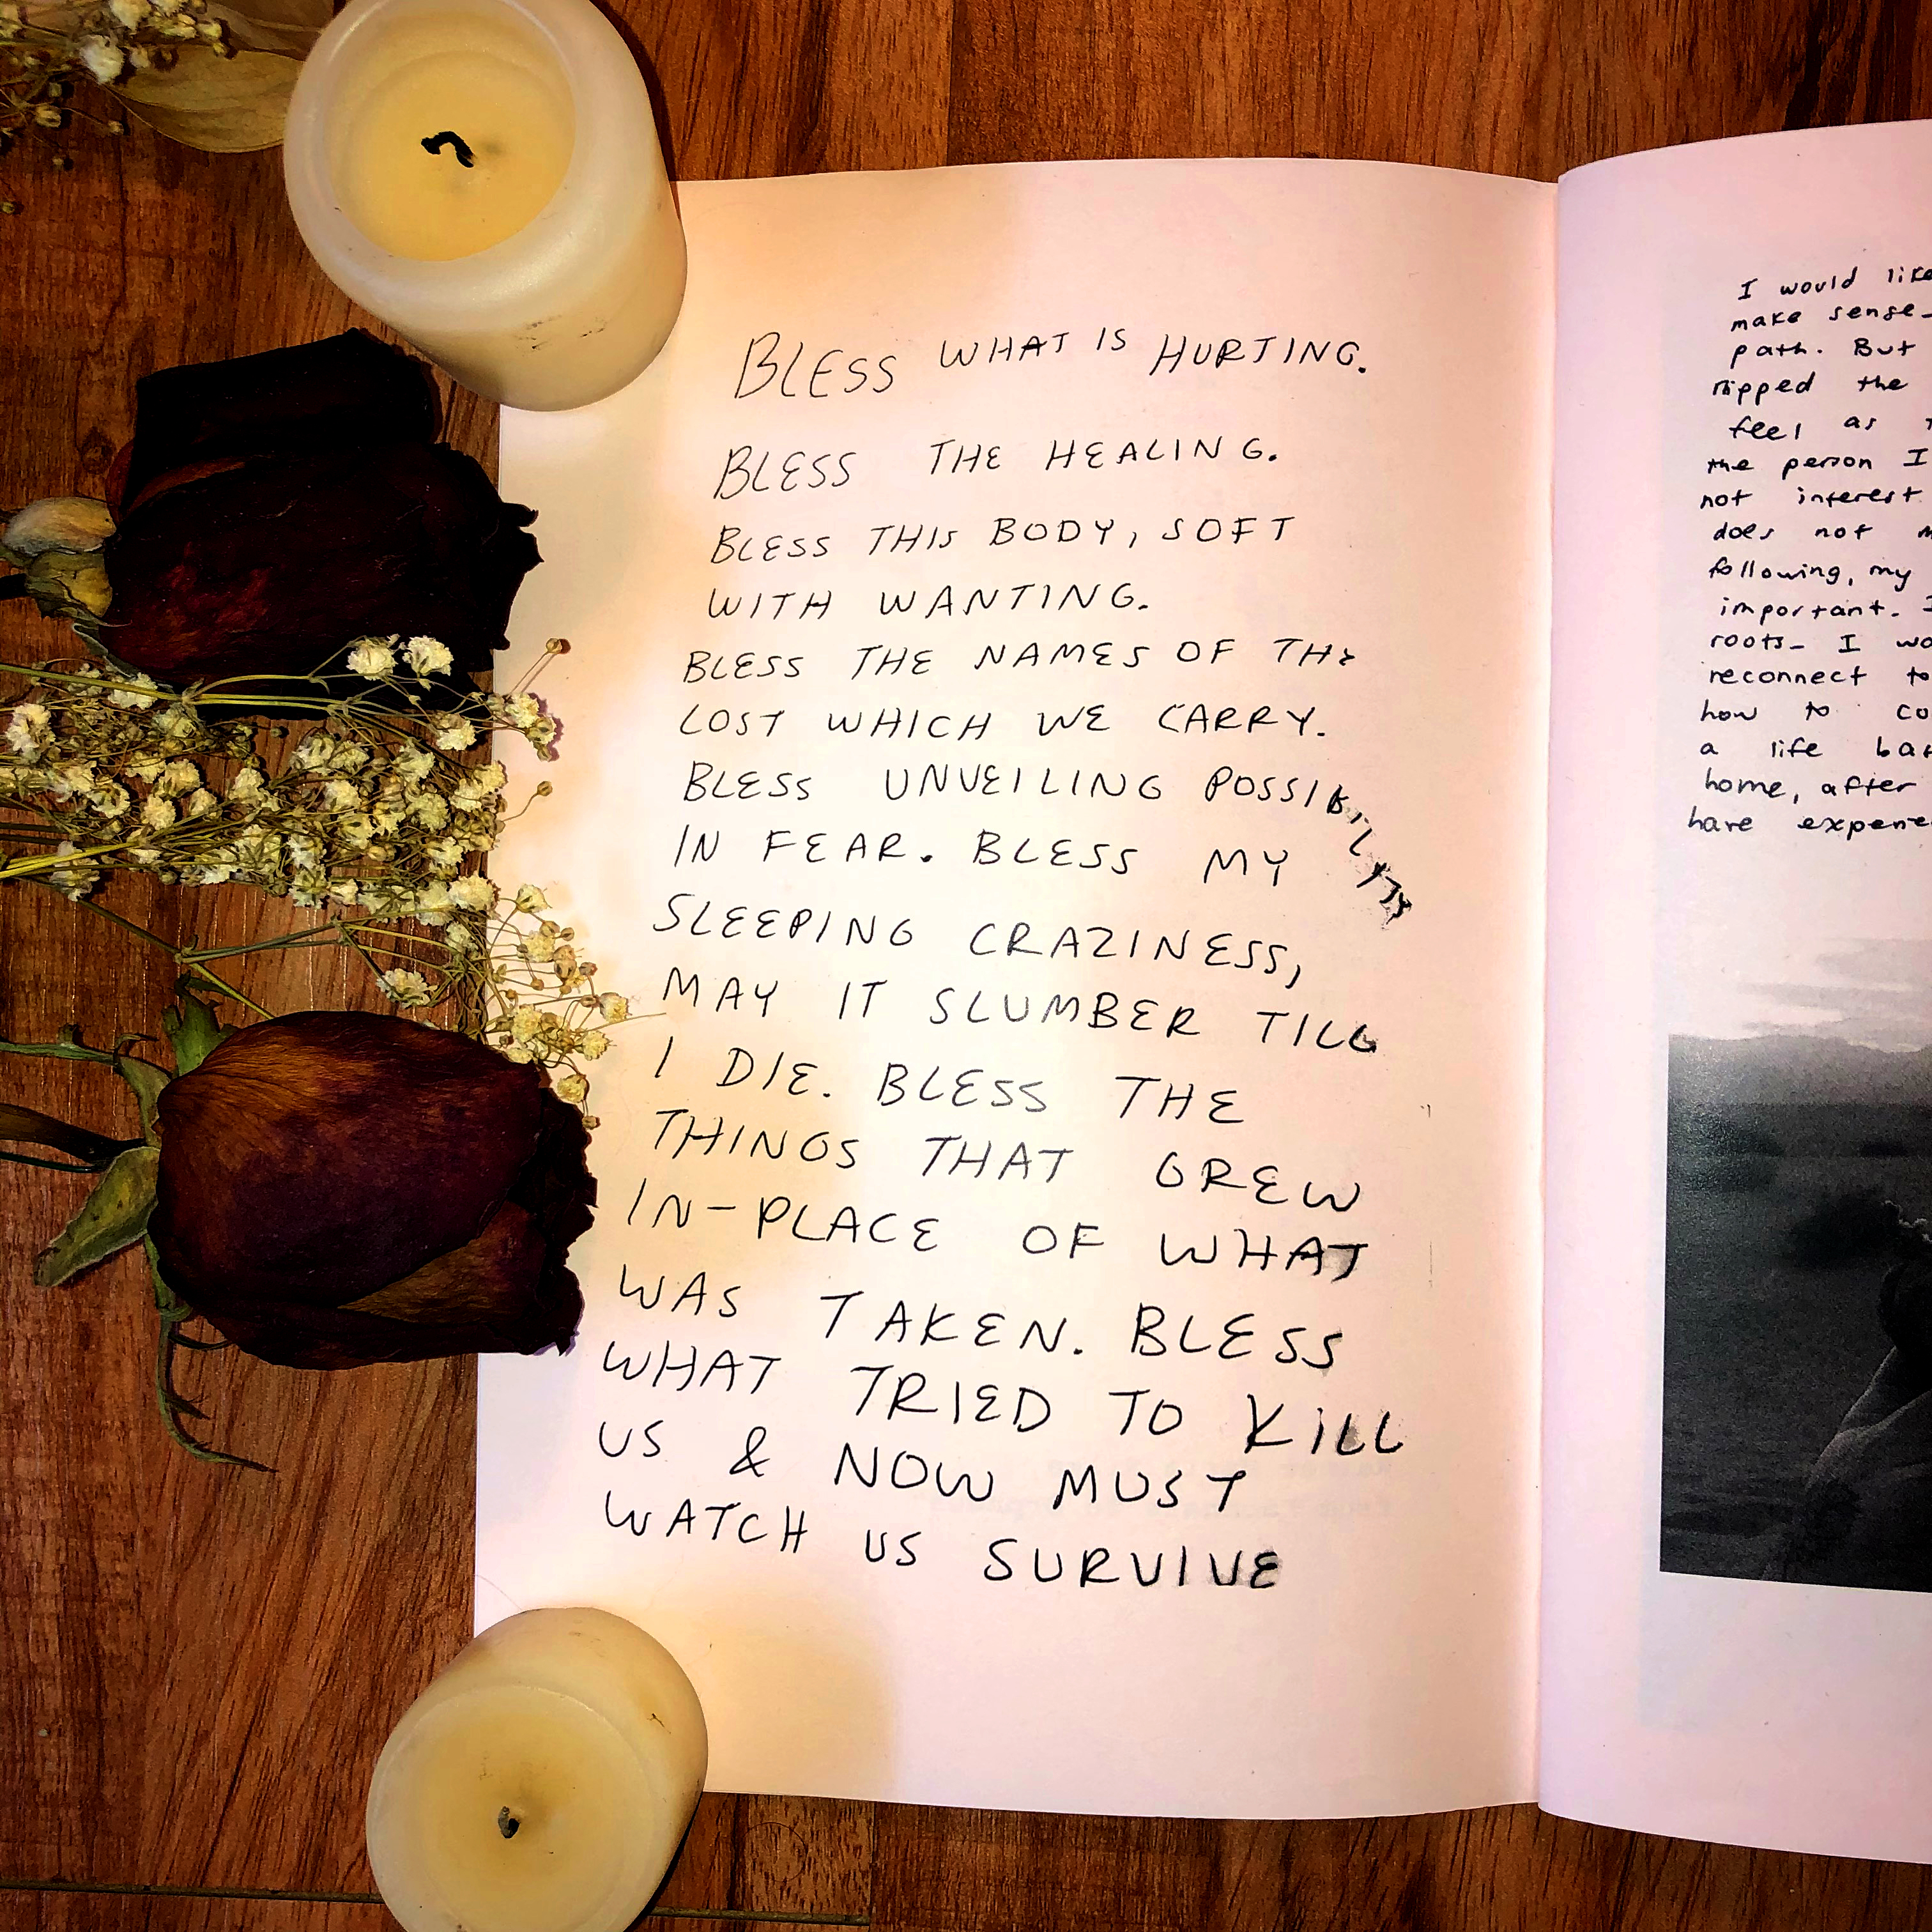 BLESS WHAT IS HURTING.
BLESS THE HEALING.
BLESS THIS BODY, SOFT
WITH WANTING.
BLESS THE NAMES OF THE
LOST WHICH WE CARRY.
BLESS UNVEILING POSSIBILITY
IN FEAR. BLESS MY
SLEEPING CRAZINESS,
MAY IT SLUMBER TILL
I DIE. BLESS THE
THINGS THAT GREW
IN-PLACE OF WHAT
WAS TAKEN. BLESS
WHAT TRIED TO KILL
US & NOW MUST
WATCH US SURVIVE
I would like
make sense-
path. But
ripped the
feel as
the person I
not interest
does not
following, my
important. I
roots- I wo
reconnect to
how to co
a life bac
home, after
have experie